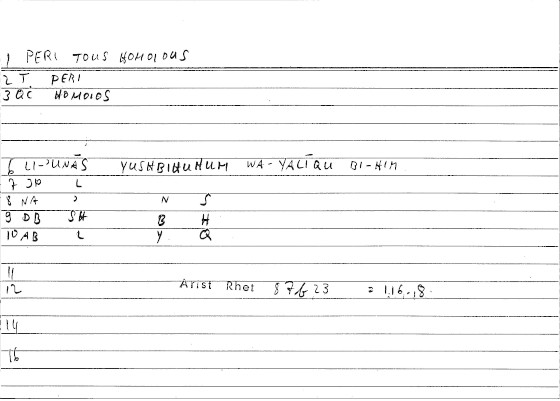 1 PERI TOUS HOMOIOUS
2 T. PERI
3 QC HOMOIOS
6 LI-'UNĀS YUSHBIHUHUM WA-YALĪQU BI-HIM
7 JP L
8 NA ' N S
9 DB SH B H
10 AB L Y Q
11
12 Arist Rhet 87b,23 = 1,16,18
14
16